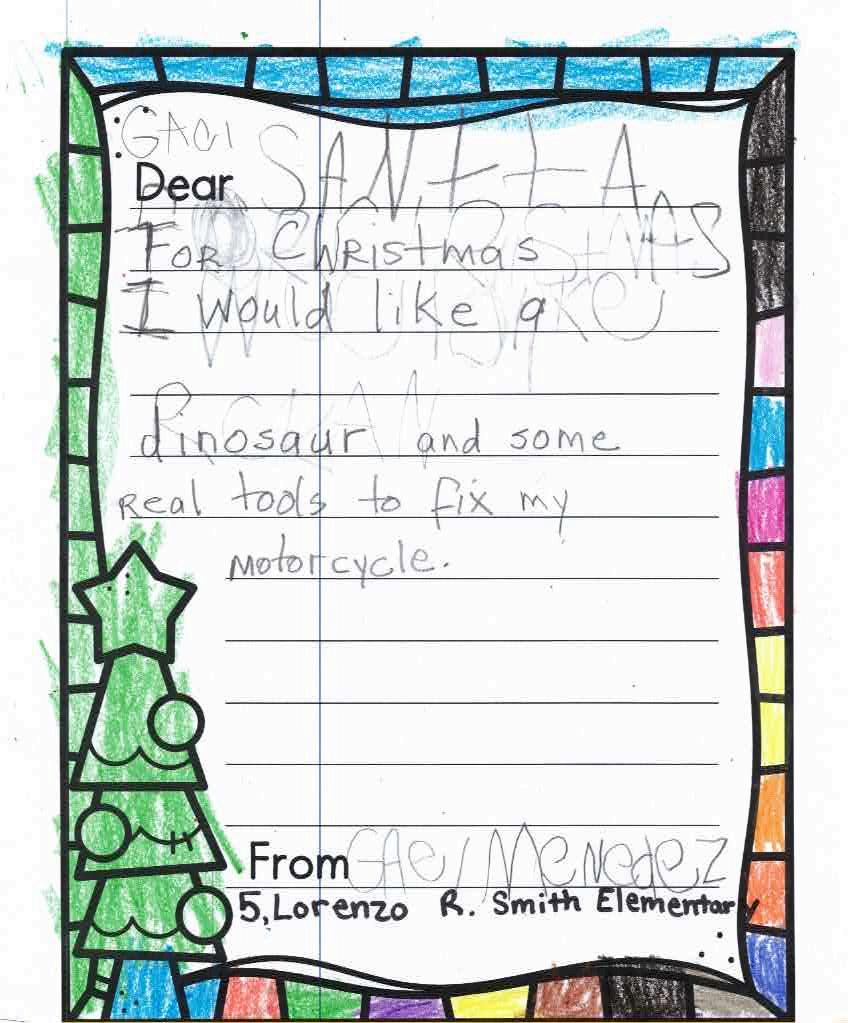 GACI
Dear SANttA
FOR Christmas
I Would like a
dinosaur and some
Real tools to fix my
motorcycle.
From GAel Menedez
5, Lorenzo R. Smith Elementary